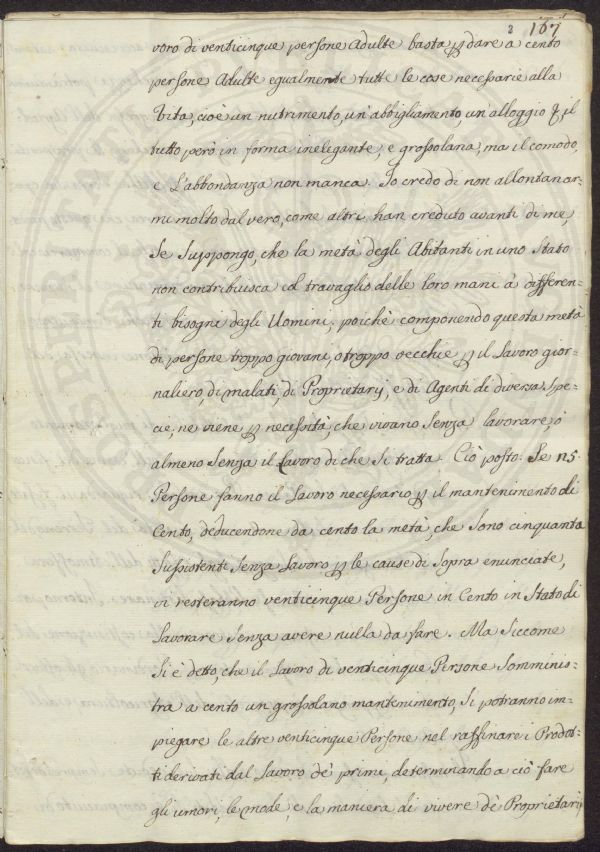 2 167
voro di venticinque persone adulte basta p dare a cento
persone adulte egualmente tutte le cose necessarie alla
Vita, cioè un nutrimento, un'abbigliamento, un alloggio & il
tutto però in forma ineligante, e grossolana, ma il comodo,
e L'abbondanza non manca. Io credo di non allontanar-
mi molto dal vero, come altri han creduto avanti di me,
Se Suppongo, che la metà degli Abitanti in uno Stato
non contribuisca col travaglio delle loro mani à differen-
ti bisogni degli Uomini; poichè componendo questa metà
di persone troppo giovani, o troppo vecchie p il Lavoro gior-
naliero, di malati, di Proprietarj, e di Agenti di diversa Spe-
cie, ne viene p necessità, che vivano Senza lavorare, ò
almeno Senza il Lavoro di che Si tratta. Ciò posto: Se 25
Persone fanno il Lavoro necessario p il mantenimento di
Cento, deducendone da cento la metà, che Sono cinquanta
Sussistenti Senza Lavoro p le cause di Sopra enunciate,
vi resteranno venticinque Persone in Cento in Stato di
Lavorare Senza avere nulla da fare. Ma Siccome
Si è detto, che il Lavoro di venticinque Persone Somminis-
tra a cento un grossolano mantenimento, Si potranno im-
piegare le altre venticinque Persone nel raffinare i Prodot-
ti derivati dal Lavoro de' primi, determinando a ciò fare
gli umori, le mode, e la maniera di vivere de' Proprietarj